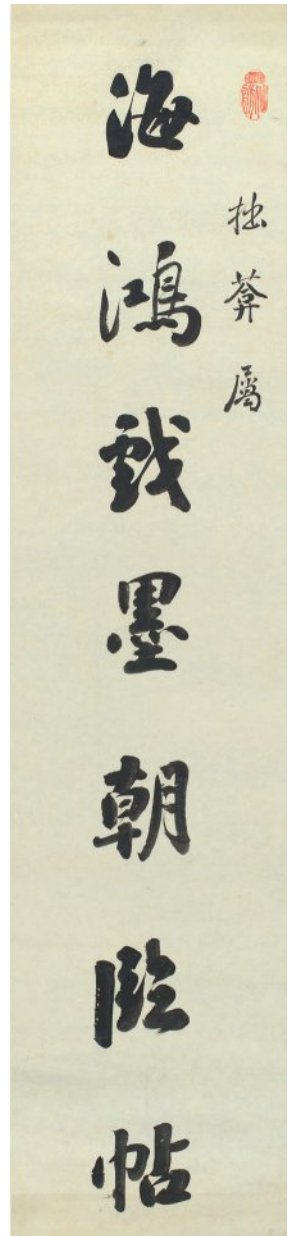 拙葊屬
海鴻戲墨朝臨帖